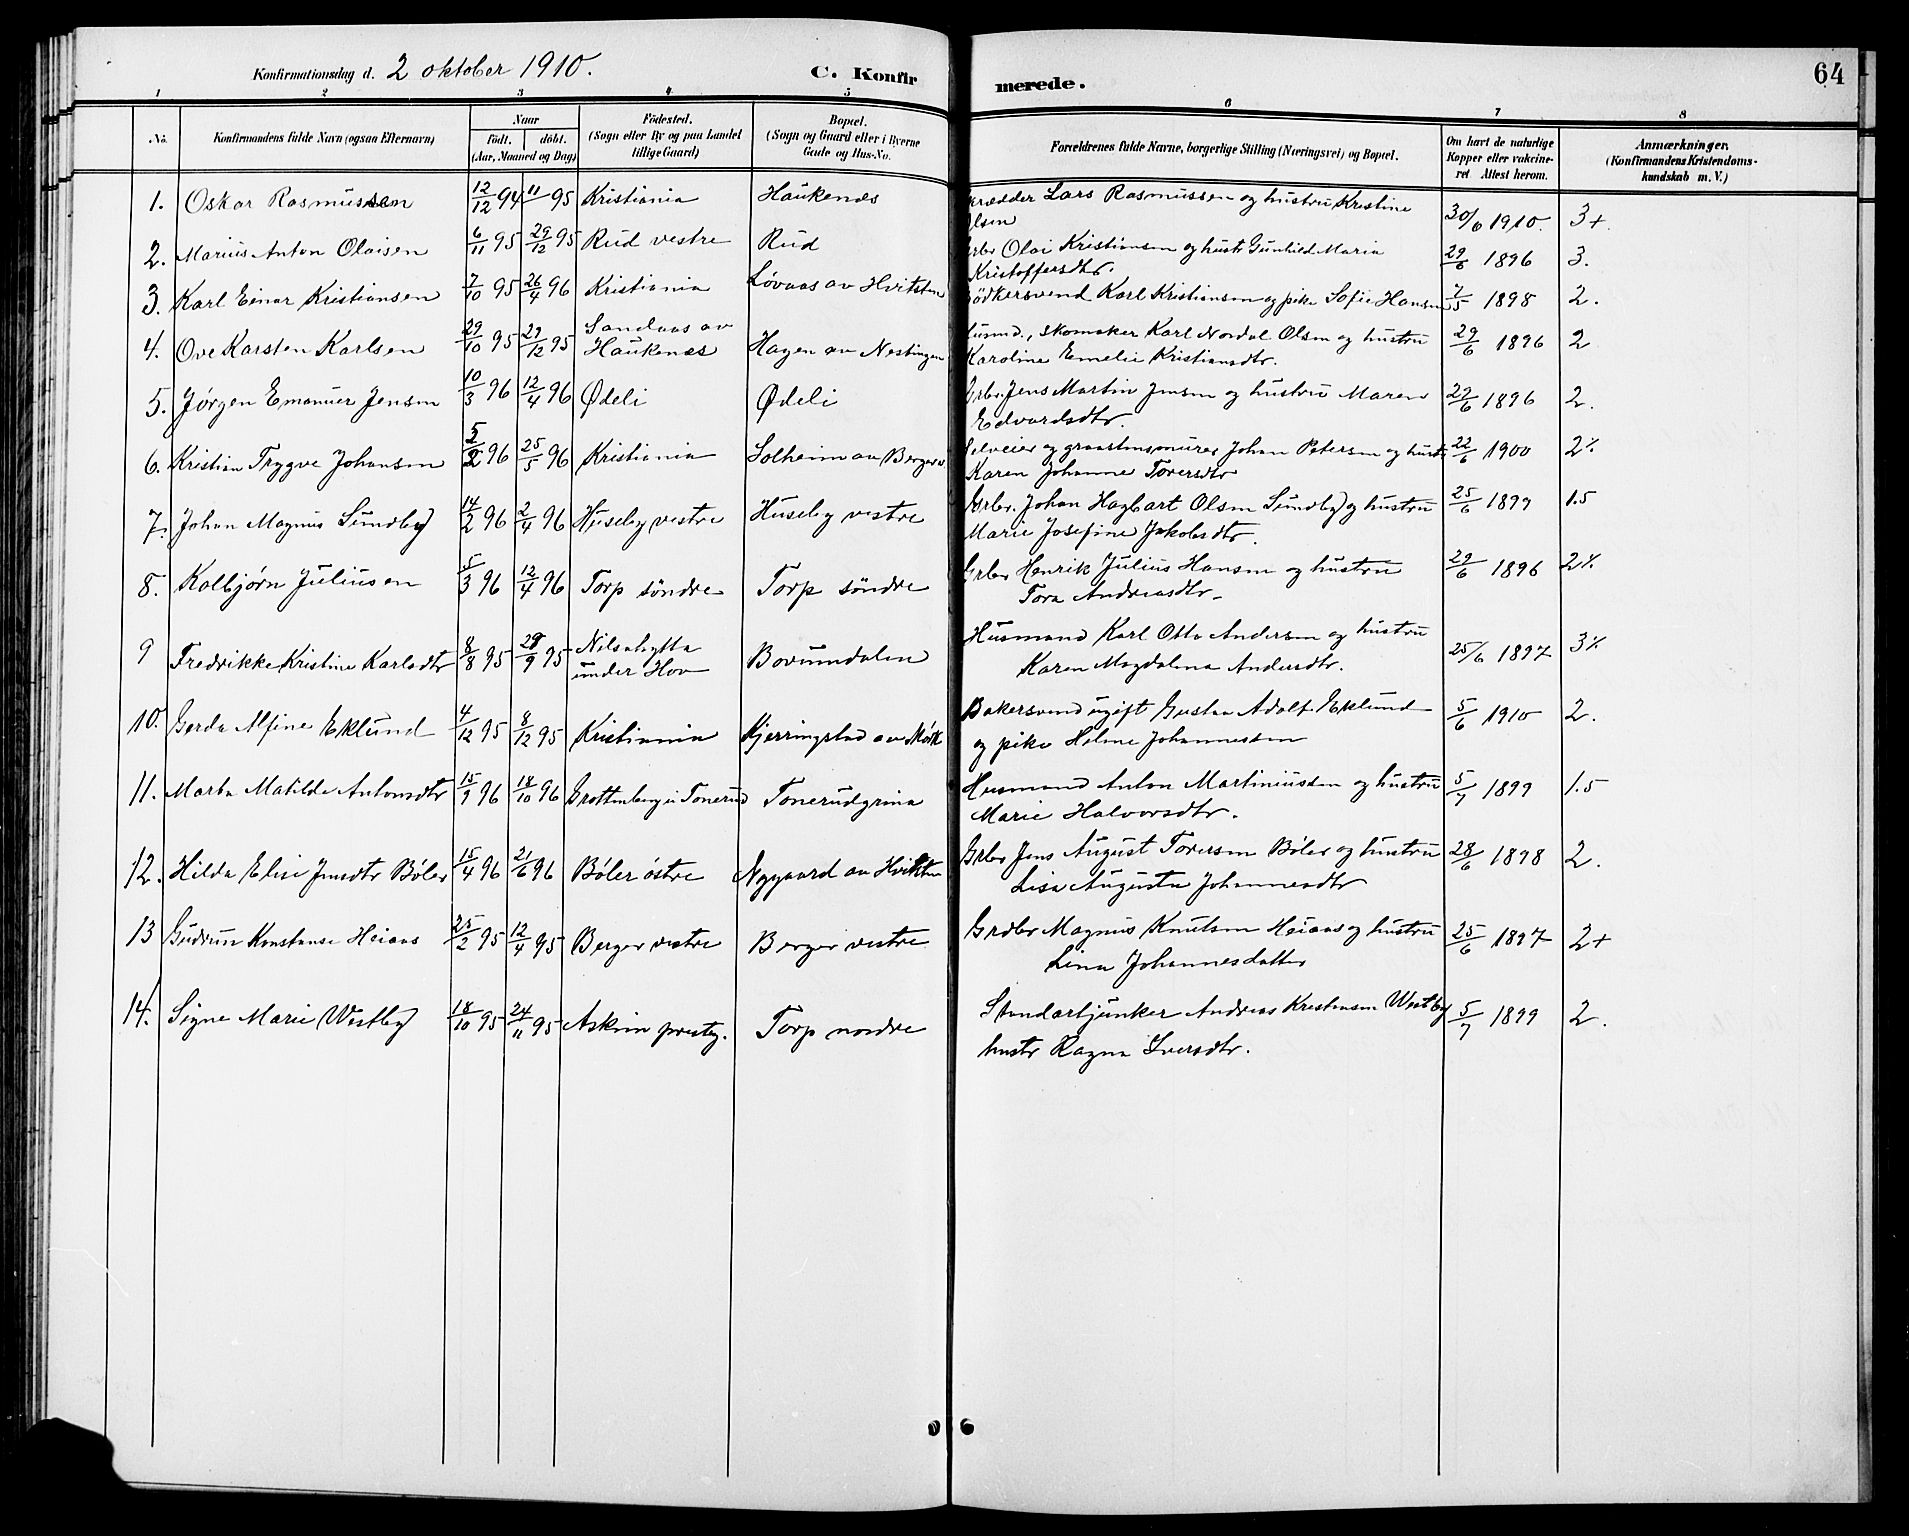 Konfirmationsdag d. 2 oktober 1910. C. Konfirmerede. 64
1 2 3 4 5 6 7 8
No. Konfirmandens fulde Navn (ogsaa Efternavn) Naar födt. döbt. (Aar, Maaned og Dag) Födested. (Sogn eller By og paa Landet tillige Gaard) Bopæl. (Sogn og Gaard eller i Byerne Gade og Hus-No. Forældrenes fulde Navne, borgerlige Stilling (Næringsvei) og Bopæl. Om havt de naturlige Kopper eller vakcineret. Attest herom. Anmærkninger. (Konfirmandens Kristendomskundskab m. V.)
1. Oskar Rasmussen 12/12 94 11 95 Kristiania Haukenes Lars Rasmussen og hustru Kristine
30/6 1910. 3+
2. Marius Anton Olaisen 6/11 95 29/12 95 Rud vestre Rud Olai Kristiansen og hustr Gunhild Maria
Kristoffersdtr. 29/6 1896 3.
3. Karl Einar Kristiansen 7/10 95 26/4 96 Kristiania Løvaas av Hvitsten Bödkersvend Karl Kristiansen og pike Sofie Hansen 7/5 1898 2.
4. Ove Karsten Karlsen 29/10 95 29/12 95 Sandaas av
Haukenes Hagen av Nestingen Husmd., skomaker Karl Nordal Olsen og hustru
Karoline Emelie Kristiansdtr. 29/6 1896 2
5. Jørgen Emanuer Jensen 10/3 96 12/4 96 Ødeli Ødeli Grbr. Jens Martin Jensen og hustru Maren
Edvardsdtr. 29/6 1896 2.
6. Kristian Trygve Johansen 5/2 96 25/5 96 Kristiania Solheim av Berger Selveier og graastensmurer Johan Petersen og hustr
Karen Johanne Toversdtr 22/6 1900 2%
7. Johan Magnus Sundby 14/2 96 2/4 96 Huseby vestre Huseby vestre Grbr. Johan Hagbart Olsen Sundby og hustru
Marie Josefine Jakobsdtr. 25/6 1899 1.5
8. Kolbjørn Juliusen 5/3 96 12/4 96 Torp söndre Torp söndre Grbr Henrik Julius Hansen og hustru
Tora Andreasdtr. 29/6 1896 2%
9 Fredrikke Kristine Karlsdtr 8/8 95 29/9 95 Nilsahytta
under Hov Bovumdalen Husmand Karl Otto Andersen og hustru
Karen Magdalena Andersdtr. 25/6 1897 3%
10. Gerda Alfine Eklund 4/12 95 8/12 95 Kristiania Kjerringstad av Mørk Bakersvend ugift Gustav Adolf Eklund
og pike Helene Johannessen 5/6 1910 2.
11. Marta Matilda Antonsdtr 15/9 96 18/10 96 Grottenberg i Tonerud Tonerudgrina Husmand Anton Martiniussen og hustru
Marie Halvorsdtr. 5/7 1899 1.5
12. Hilda Elise Jensdtr Bøler 15/4 96 21/6 96 Bøler östre Nygaard av Hvitsten Grbr Jens August Toversen Bøler og hustru
Lisa Augusta Johannesdtr 28/6 1898 2.
13 Gudrun Konstanse Heiaas 25/2 95 12/4 95 Berger vestre Berger vestre Grdbr Magnus Knutsen Heiaas og hustru
Lina Johannesdatter 25/6 1897 2+
14. Signe Marie Westby 18/10 95 24/11 95 Askim prestg. Torp nordre Standartjunker Andreas Kristiansen Westby
hustr Ragna Iversdtr. 5/7 1899 2.